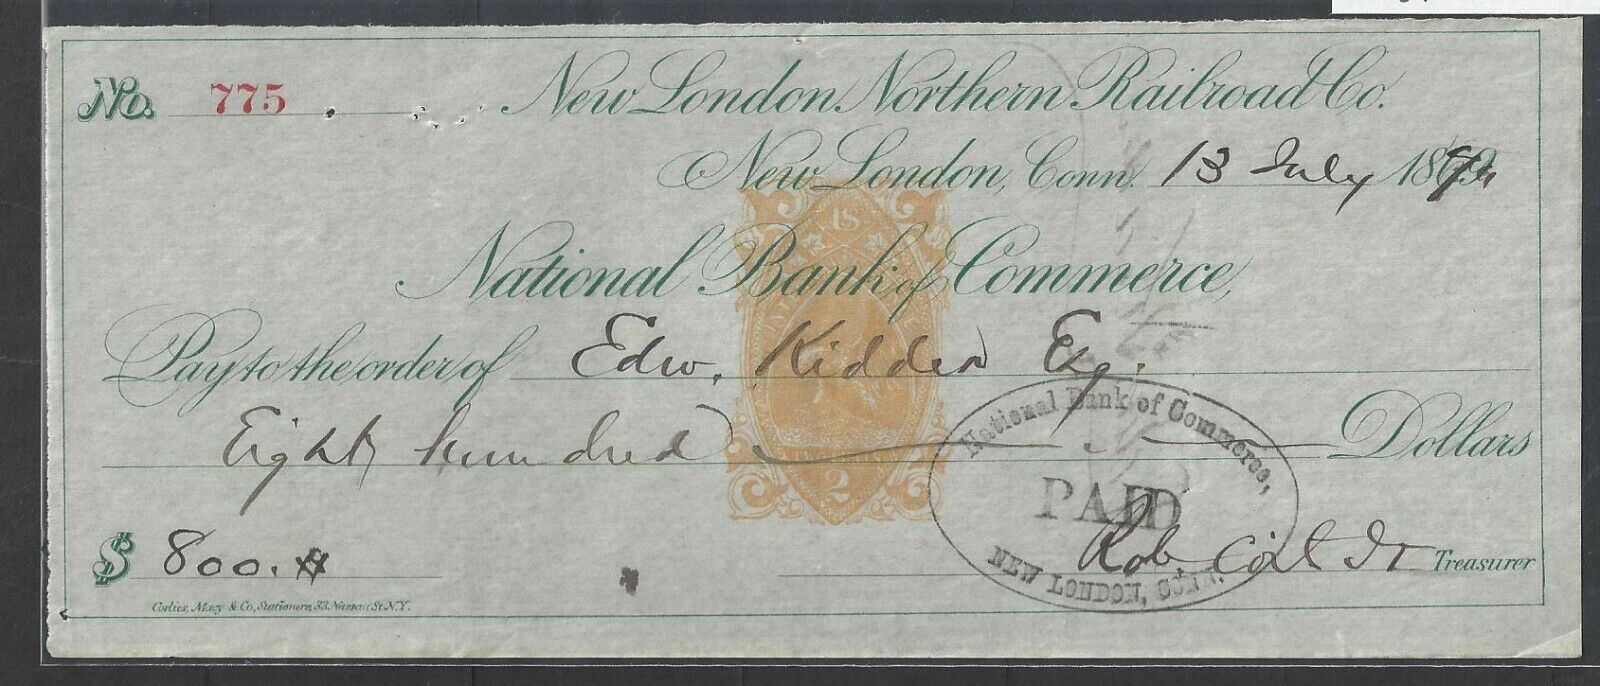 No. 775 New London Northern Railroad Co.
New London, Conn. 13 July 18
National Bank of Commerce,
Pay to the order of Edw. Kidder Esq.
Eight hundred Dollars
$ 800.
Rob. Coit Jr Treasurer
Corlies, Macy & Co., Stationers, 33 Nassau St. N.Y.
National Bank of Commerce,
PAID
NEW LONDON, CONN.
U S
2